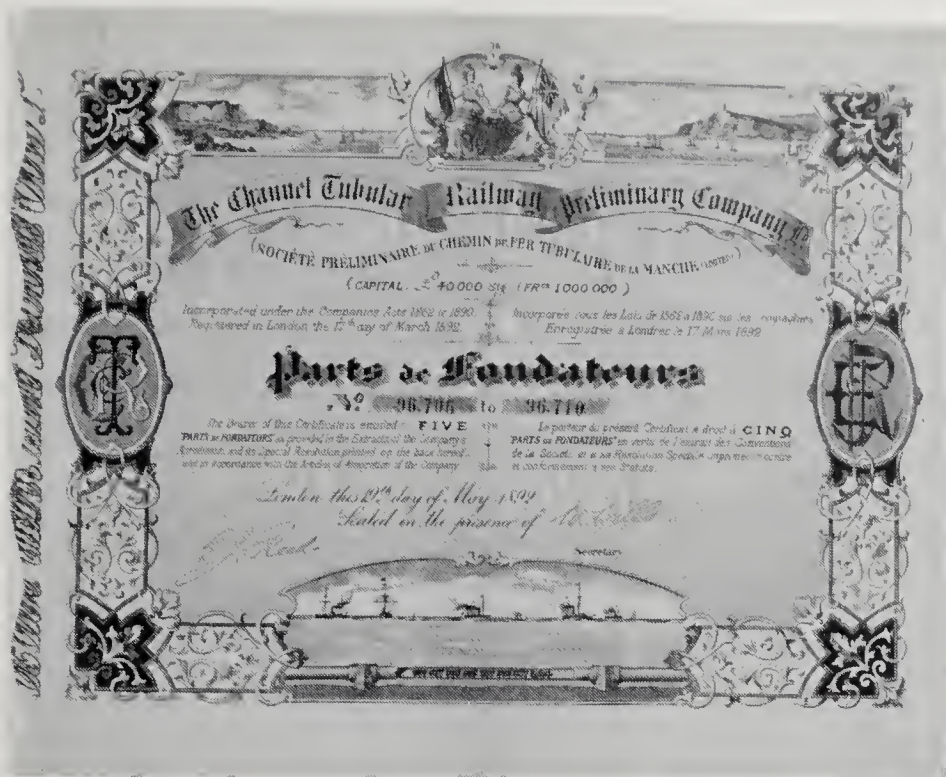 The Channel Tubular Railway Preliminary Company, Ld
(SOCIÉTÉ PRÉLIMINAIRE DU CHEMIN DE FER TUBULAIRE DE LA MANCHE (LIMITED))
(CAPITAL. £ 40 000 Stg (FRcs 1 000 000)
Incorporated under the Companies Acts 1862 to 1890.
Registered in London the 17th day of March 1892.
Incorporée sous les Lois de 1862 à 1890 sur les compagnies
Enregistrée à Londres le 17 Mars 1892
Parts de Fondateurs
No. 96.706 to 96.710
The Bearer of this Certificate is entitled to FIVE
"PARTS DE FONDATEURS" as provided in the Extracts of the Company's
Agreement, and its Special Resolution printed on the back hereof
and in accordance with the Articles of Association of the Company
Le porteur du présent Certificat a droit à CINQ
"PARTS DE FONDATEURS" en vertu de l'extrait des Conventions
de la Société et à sa Résolution Spéciale imprimée contre
et conformément à ses Statuts.
London this 19th day of May 1892
Sealed in the presence of
Secretary